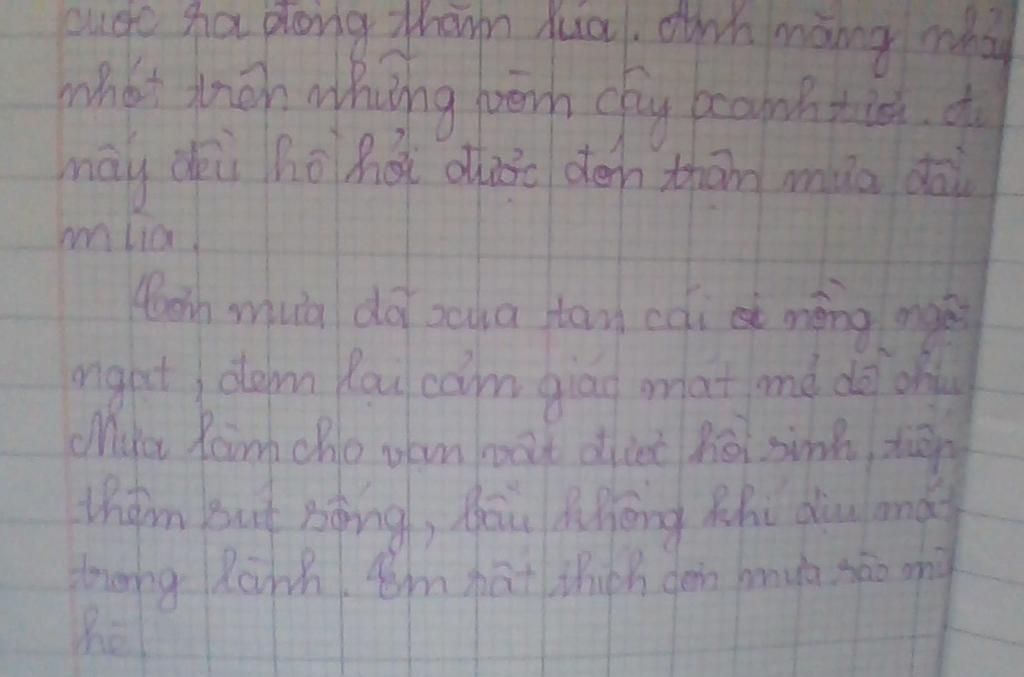 cuộc ra đồng thăm lúa. Ánh nắng nhảy
nhót trên những vòm cây xanh tươi. Ai
nấy đều hồ hởi được đón trận mưa đầu
mùa.
Cơn mưa đã xua tan cái oi nồng ngột
ngạt, đem lại cảm giác mát mẻ dễ chịu
Mưa làm cho vạn vật được hồi sinh, tiếp
thêm sưt sống, bầu không khí dịu mát
trong lành. Em rất thích cơn mưa rào mù
hè